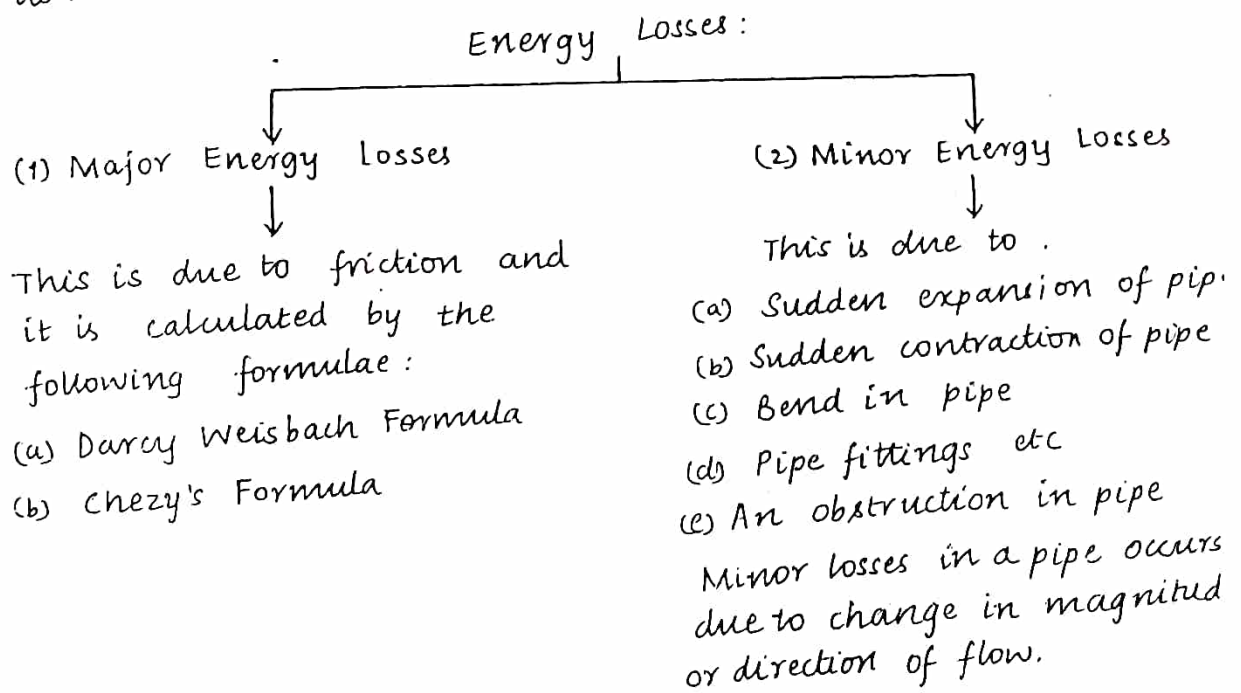 Energy Losses :
(1) Major Energy Losses
This is due to friction and
it is calculated by the
following formulae :
(a) Darcy Weisbach Formula
(b) Chezy's Formula
(2) Minor Energy Losses
This is due to .
(a) Sudden expansion of pip.
(b) Sudden contraction of pipe
(c) Bend in pipe
(d) Pipe fittings etc
(e) An obstruction in pipe
Minor losses in a pipe occurs
due to change in magnitud
or direction of flow.